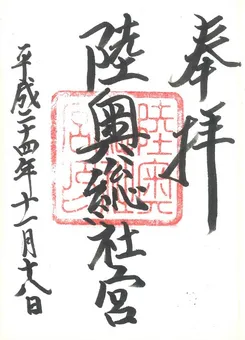 奉拝
陸奥総社宮
平成二十四年十一月十八日